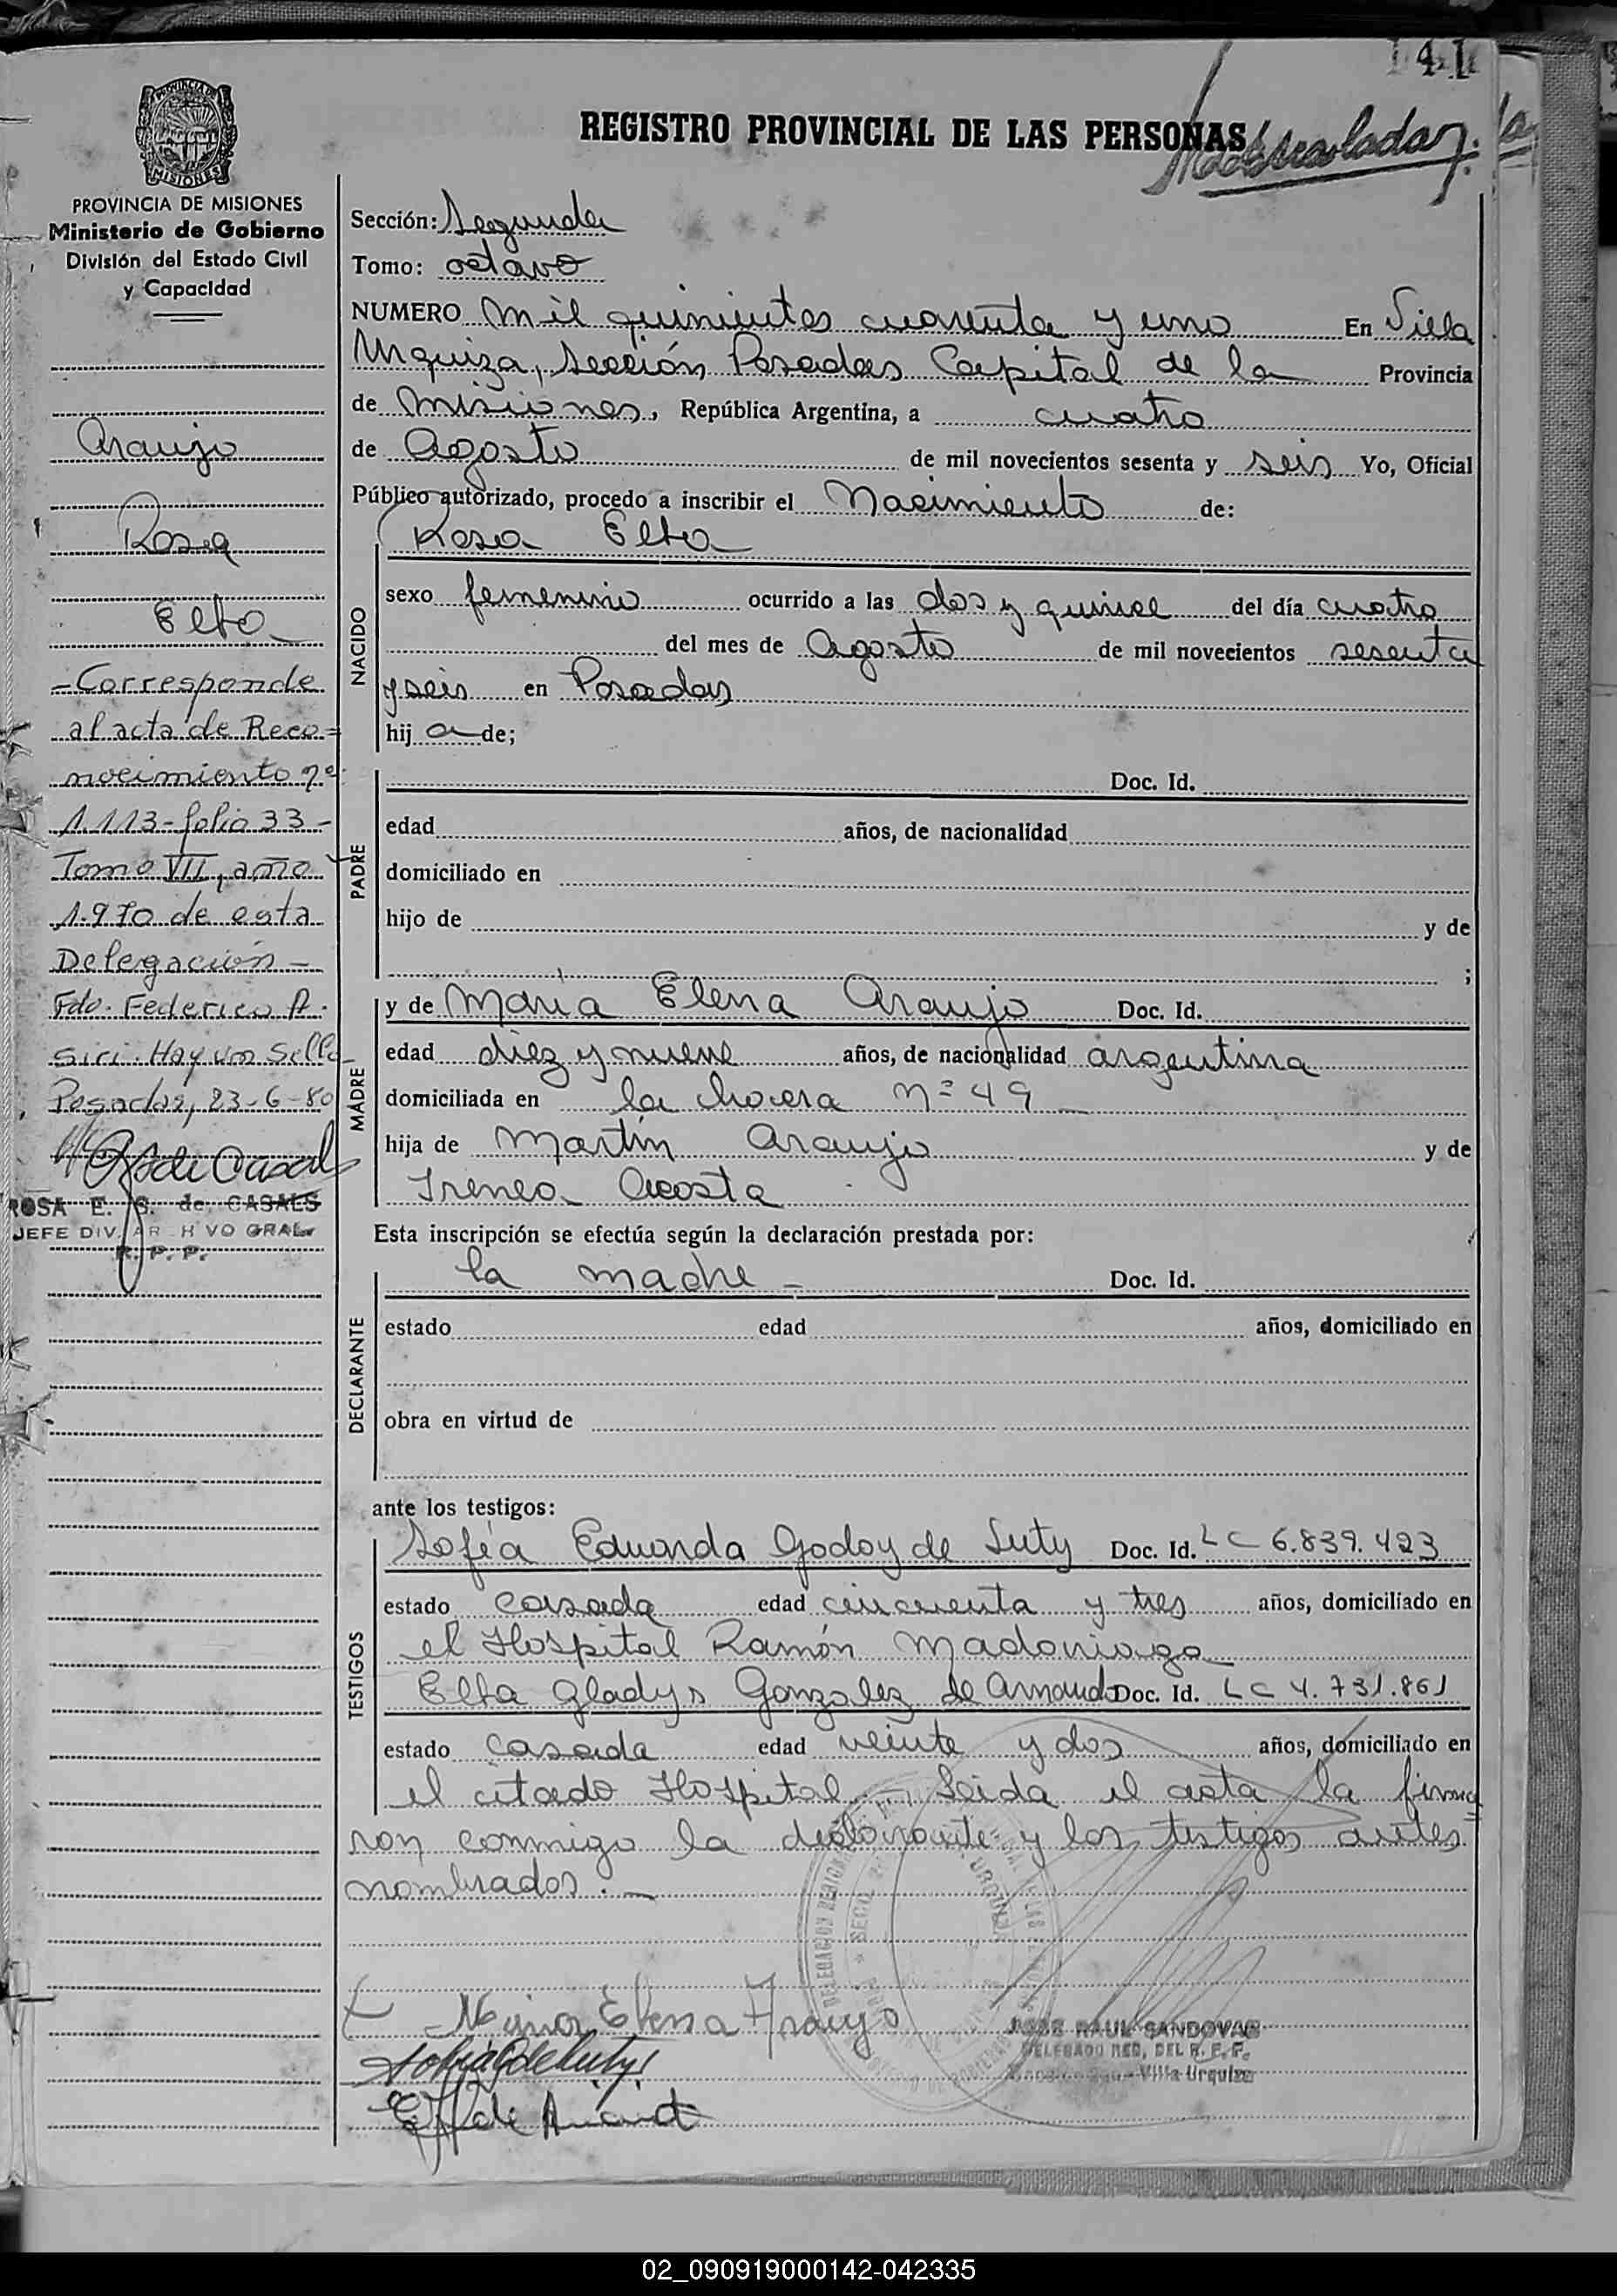 141
REGISTRO PROVINCIAL DE LAS PERSONAS
PROVINCIA DE MISIONES
Ministerio de Gobierno
División del Estado Civil
y Capacidad
Araujo
Rosa
Elba
- Corresponde
al acta de Reco=
nocimiento nº
1.113 - folio 33 -
Tomo VII, año
1.970 de esta
Delegación -
Fdo. Federico A.
Siri. Hay un Sello
Posadas, 23-6-80
ROSA E. S. de CASALS
JEFE DIV. AR HIVO GRAL.
R. P. P.
Sección: Segunda
Tomo: octavo
NUMERO mil quinientos cuarenta y uno En Villa
Urquiza, Sección Posadas Capital de la Provincia
de Misiones, República Argentina, a cuatro
de Agosto de mil novecientos sesenta y seis Yo, Oficial
Público autorizado, procedo a inscribir el Nacimiento de:
Rosa Elba
NACIDO
sexo femenino ocurrido a las dos y quince del día cuatro
del mes de Agosto de mil novecientos sesenta
y seis en Posadas
hij a de;
Doc. Id.
PADRE
edad años, de nacionalidad
domiciliado en
hijo de y de
;
MADRE
y de María Elena Araujo Doc. Id.
edad diez y nueve años, de nacionalidad argentina
domiciliada en la chacra nº 49
hija de Martín Araujo y de
Irenea Acosta
Esta inscripción se efectúa según la declaración prestada por:
DECLARANTE
la madre - Doc. Id.
estado edad años, domiciliado en
obra en virtud de
ante los testigos:
TESTIGOS
Sofía Eduarda Godoy de Luty Doc. Id. LC 6.839.423
estado casada edad cincuenta y tres años, domiciliado en
el Hospital Ramón Madariaga
Elba Gladys Gonzalez de Doc. Id. LC 4.731.861
estado casada edad veinte y dos años, domiciliado en
el citado Hospital. Leida el acta la firma
ron conmigo la declarante y los testigos antes
nombrados. -
Maria Elena Araujo
JOSE RAUL SANDOVAL
DELEGADO REG. DEL R. P. P.
Villa Urquiza
02_090919000142-042335